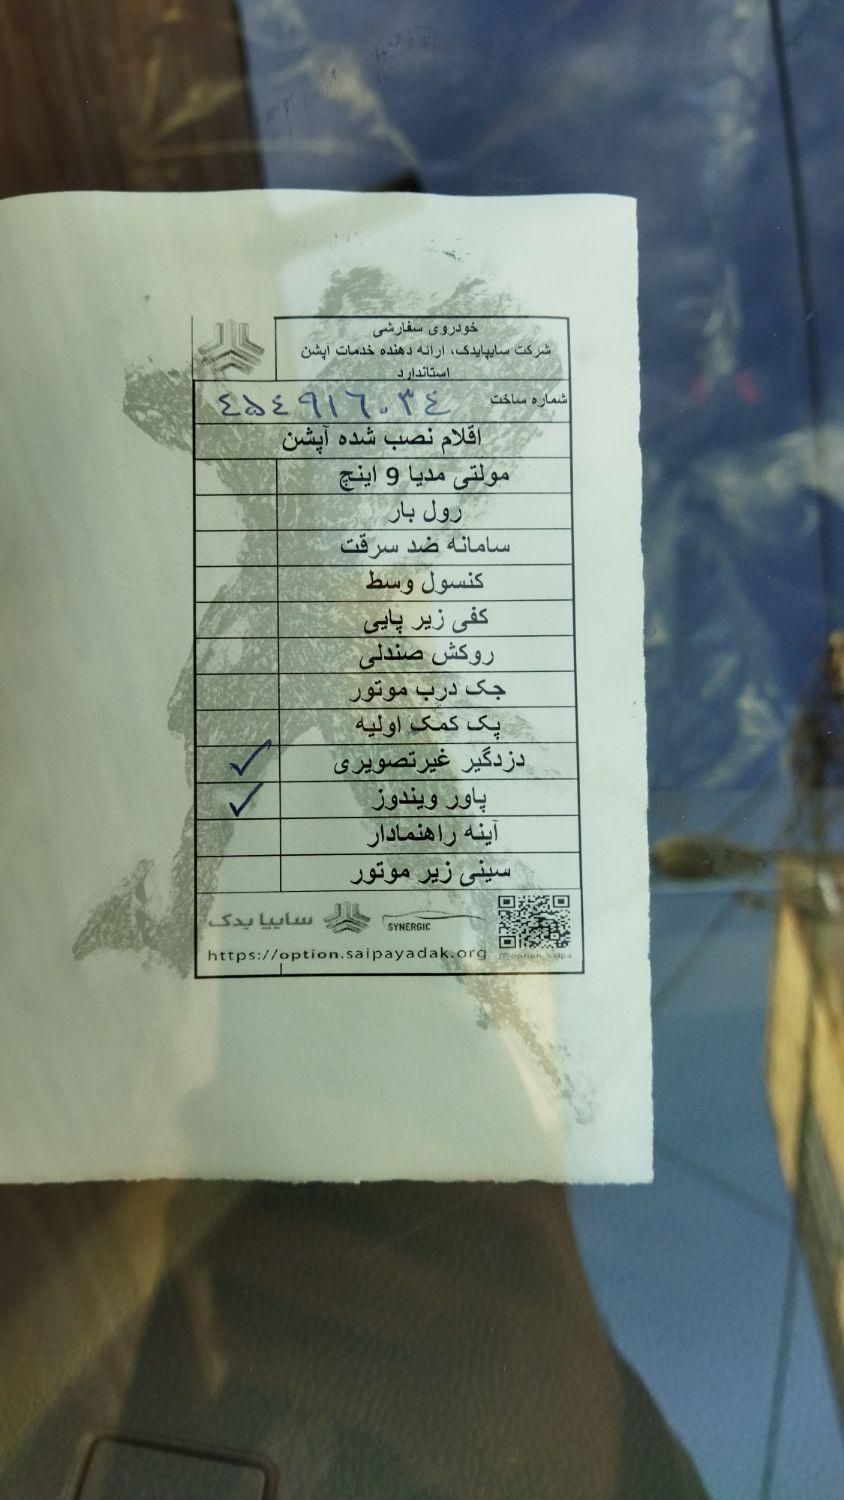 خودروی سفارشی
شرکت سایپایدک، ارائه دهنده خدمات آپشن
استاندارد
شماره ساخت ٤٥٤٩١٦٠٣٤
اقلام نصب شده آپشن
مولتی مدیا 9 اینچ
رول بار
سامانه ضد سرقت
کنسول وسط
کفی زیر پایی
روکش صندلی
جک درب موتور
پک کمک اولیه
دزدگیر غیرتصویری ✓
پاور ویندوز ✓
آینه راهنمادار
سینی زیر موتور
سایپا یدک SYNERGIC
https://option.saipayadak.org @option_saipa